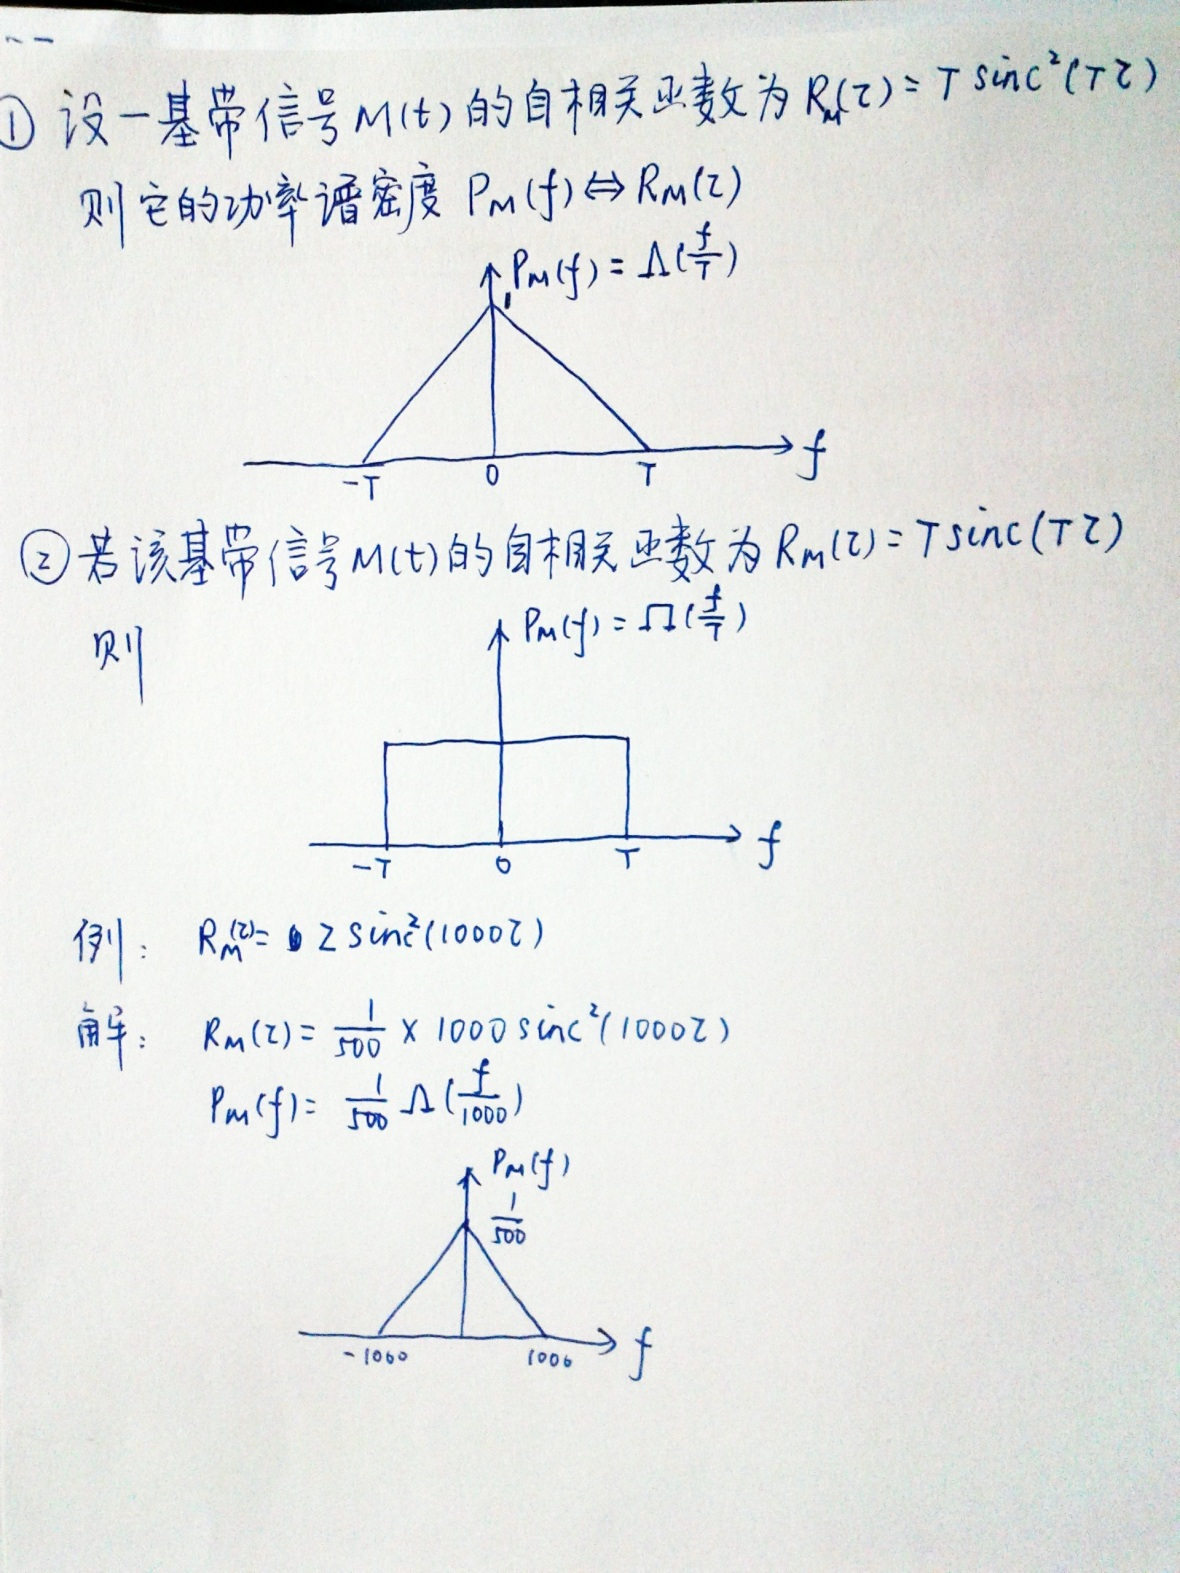 ① 设一基带信号M(t)的自相关函数为 R_M(τ)=T sinc²(Tτ)
则它的功率谱密度 P_M(f)⇔R_M(τ)
P_M(f)=Λ(f/T)
1
f
-T 0 T
② 若该基带信号M(t)的自相关函数为R_M(τ)=Tsinc(Tτ)
则
P_M(f)=Π(f/T)
f
-T 0 T
例: R_M(τ)= 2 sinc²(1000τ)
解: R_M(τ)= 1/500 × 1000 sinc²(1000τ)
P_M(f)= 1/500 Λ(f/1000)
P_M(f)
1/500
f
-1000 1000